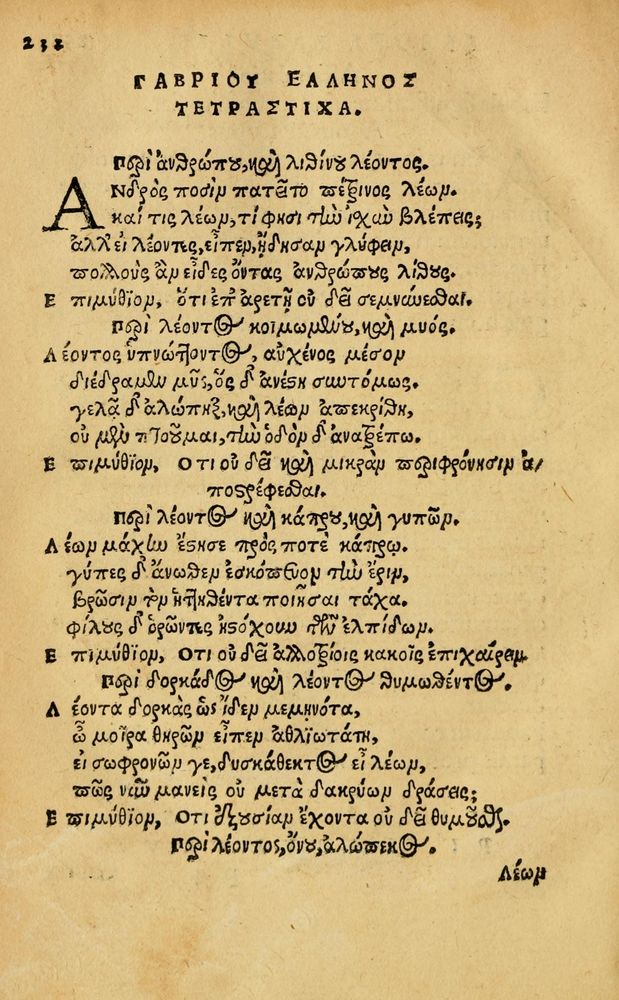 232
ΓΑΒΡΙΟΥ ΕΛΛΗΝΟΣ
ΤΕΤΡΑΣΤΙΧΑ.
Περὶ ἀνθρώπου, καὶ λιθίνου λέοντος.
ΑΝδρὸς ποσὶν πατεῖτο πέτρινος λέων.
καί τις λέων, τί φησι τὴν ἰχὺν βλέπεις;
ἀλλ' εἰ λέοντες, εἶπεν, ᾔδησαν γλύφειν,
πολλοὺς ἂν εἶδες ὄντας ἀνθρώπους λίθους.
Επιμύθιον, ὅτι ἐπ' ἀρετῇ οὐ δεῖ σεμνύνεσθαι.
Περὶ λέοντος κοιμωμένου, καὶ μυός.
Λέοντος ὑπνώττοντος, αὐχένος μέσον
διέδραμεν μῦς, ὃς δ' ἀνέστη συντόμως.
γελᾷ δ' ἀλώπηξ, καὶ λέων ἀπεκρίθη,
οὐ μῦν πτοοῦμαι, τὴν ὁδὸν δ' ἀνατρέπω.
Επιμύθιον, Οτι οὐ δεῖ καὶ μικρὰν περιφρόνησιν ἀ/
ποστρέφεσθαι.
Περὶ λέοντος καὶ κάπρου, καὶ γυπῶν.
Λέων μάχην ἔστησε πρὸς ποτὲ κάπρῳ.
γύπες δ' ἄνωθεν ἐσκόπευον τὴν ἔριν,
βρῶσιν τὸν ἡττηθέντα ποιῆσαι τάχα.
φίλους δ' ὁρῶντες ἠστόχουν τῶν ἐλπίδων.
Επιμύθιον, Οτι οὐ δεῖ ἀλλοτρίοις κακοῖς ἐπιχαίρειν.
Περὶ δορκάδος καὶ λέοντος θυμωθέντος.
Λέοντα δορκὰς ὡς ἴδεν μεμηνότα,
ὦ μοῖρα θηρῶν εἶπεν ἀθλιωτάτη,
εἰ σωφρονῶν γε, δυσκάθεκτος εἶ λέων,
πῶς νῦν μανεὶς οὐ μετὰ δακρύων δράσεις;
Επιμύθιον, Οτι ἐξουσίαν ἔχοντα οὐ δεῖ θυμοῦσθαι.
Περὶ λέοντος, ὄνου, ἀλώπεκος.
Λέων